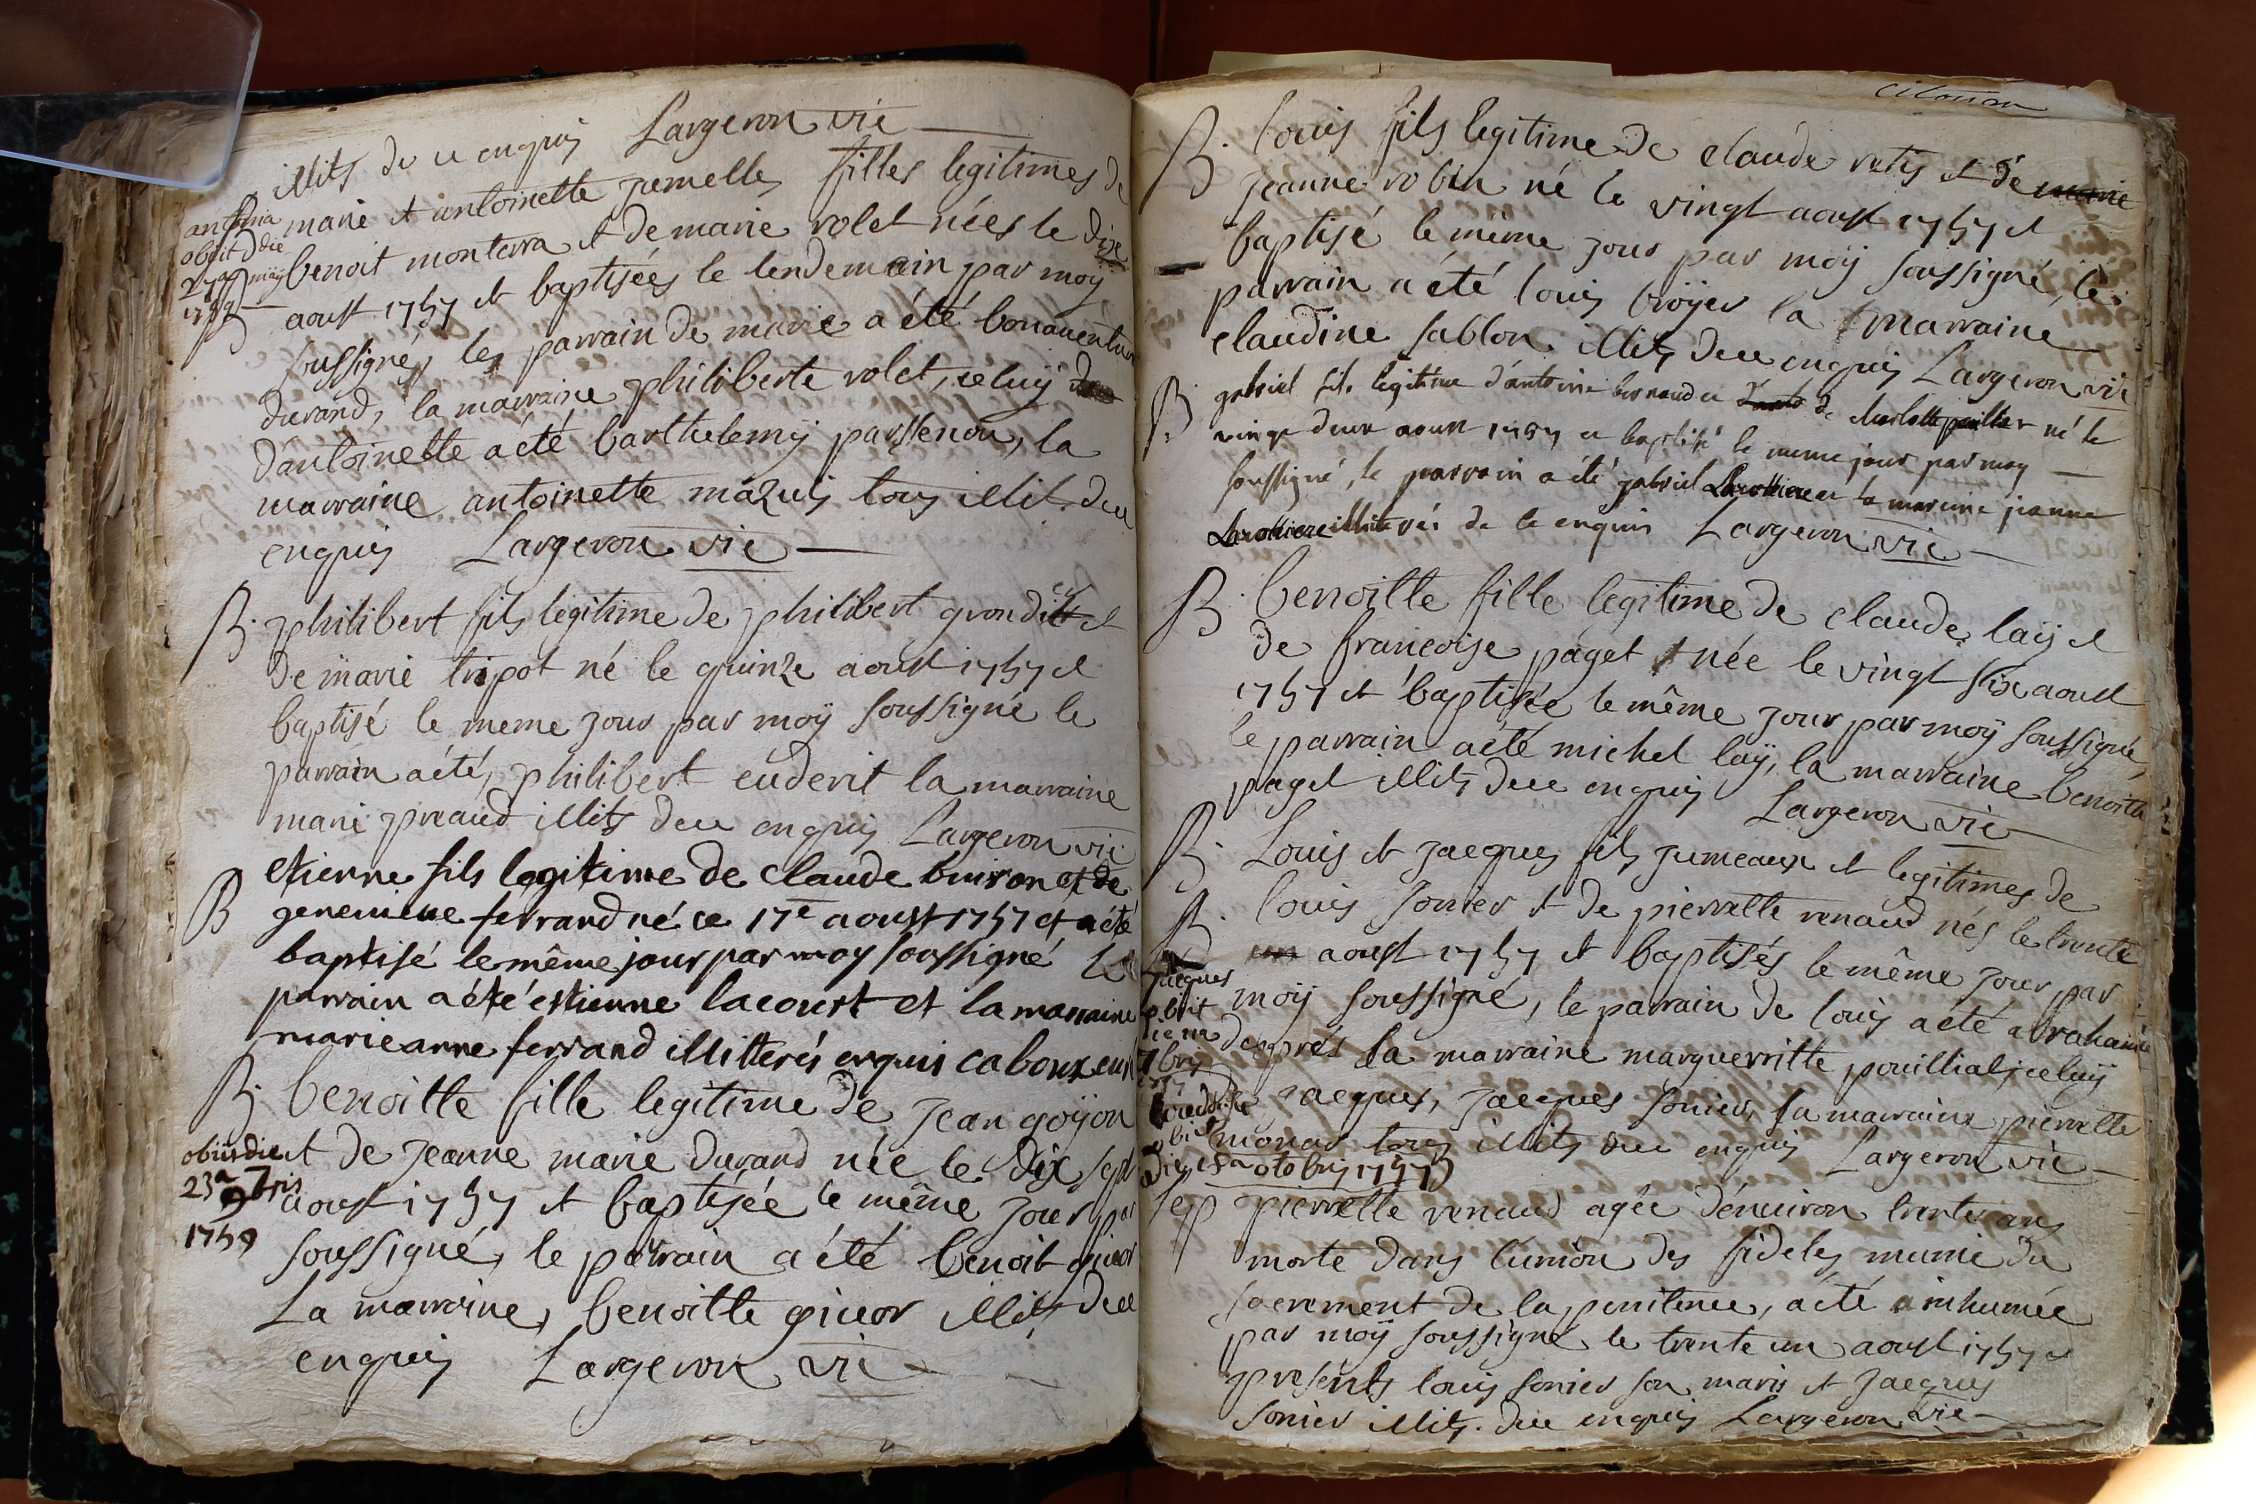 illits de ce enquis Largeron vic
B. marie et antoinette jumelles filles legitimes de
antonia
obiit die
27a maÿ
benoit monterra et de marie volet nées le dixe
B
aoust 1757 et baptisées le lendemain par moÿ
soussigné, les parrain de marie a été bonaventure
durand, la marraine philiberte volet, celuÿ
d'antoinette a été barthelemÿ parssenou, la
marraine antoinette mazuis tous illit. de ce
enquis Largeron vic
B. philibert fils legitime de philibert grondit et
de marie tripot né le quinze aoust 1757 et
baptisé le meme jour par moÿ soussigné le
parrain a été, philibert euderit la marraine
marie preaud illits de ce enquis Largeron vic
B etienne fils legitime de claude buiron et de
genevieve ferrand né ce 17e aoust 1757 et a été
baptisé le même jour par moy soussigné Le
parrain a été estienne lacourt et la marraine
marieanne ferrand illitterés enquis
B. benoitte fille legitime de jean goÿon
et de jeanne marie durand née le dix sept
obiit die
23a 9bris
1759
aoust 1757 et baptisée le même jour par
soussigné, le parrain a été benoit giuor
La marraine, benoitte giuor illits de ce
enquis Largeron vic
B. louis fils legitime de claude vetis et de marie
jeanne robin né le vingt aoust 1757 et
baptisé le même jour par moÿ soussigné, le
parrain a été louis broÿer la marraine
claudine sablon illits de ce enquis Largeron vic
B gabriel fils legitime d'antoine bernand et de charlotte paillier né le
vingt deux aoust 1757 et baptisé le meme jour par moy
soussigné, le parrain a été gabriel Larolliere et la mareine jeanne
Larolliere illiterés de ce enquis Largeron vic
B. benoitte fille legitime de claude laÿ et
de francoise paget née le vingt six aoust
1757 et baptisée le même jour par moÿ soussigné,
le parrain a été michel laÿ, la marraine benoitte
paget illits de ce enquis Largeron vic
B. Louis et jacques fils jumeaux et legitimes de
B. louis sonier et de pierrette renaud nés le trente
un aoust 1757 et baptisés le même jour par
jacques
obiit
7bris
moÿ soussigné, le parrain de louis a été abraham
després la marraine marguerritte pouilliat, celuÿ
jacques, jacques sonier, la marraine pierrette
obiit
monar tous illits de ce enquis Largeron vic
die 18a octobris 1757
Sep pierrette renaud agée d'environ trente ans
morte dans l'union des fideles munie du
sacrement de la penitence, a été inhumée
par moÿ soussigné le trente un aoust 1757 et
présents louis sonier son maris et jacques
sonier illits. de ce enquis Largeron vic